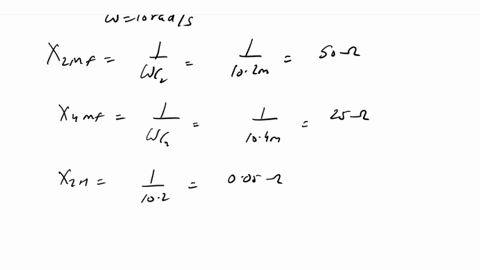 ω = 10 rad/s
X2mf = 1/ωC2 = 1/10·2m = 50 Ω
X4mf = 1/ωC2 = 1/10·4m = 25 Ω
X2H = 1/10·2 = 0.05 Ω